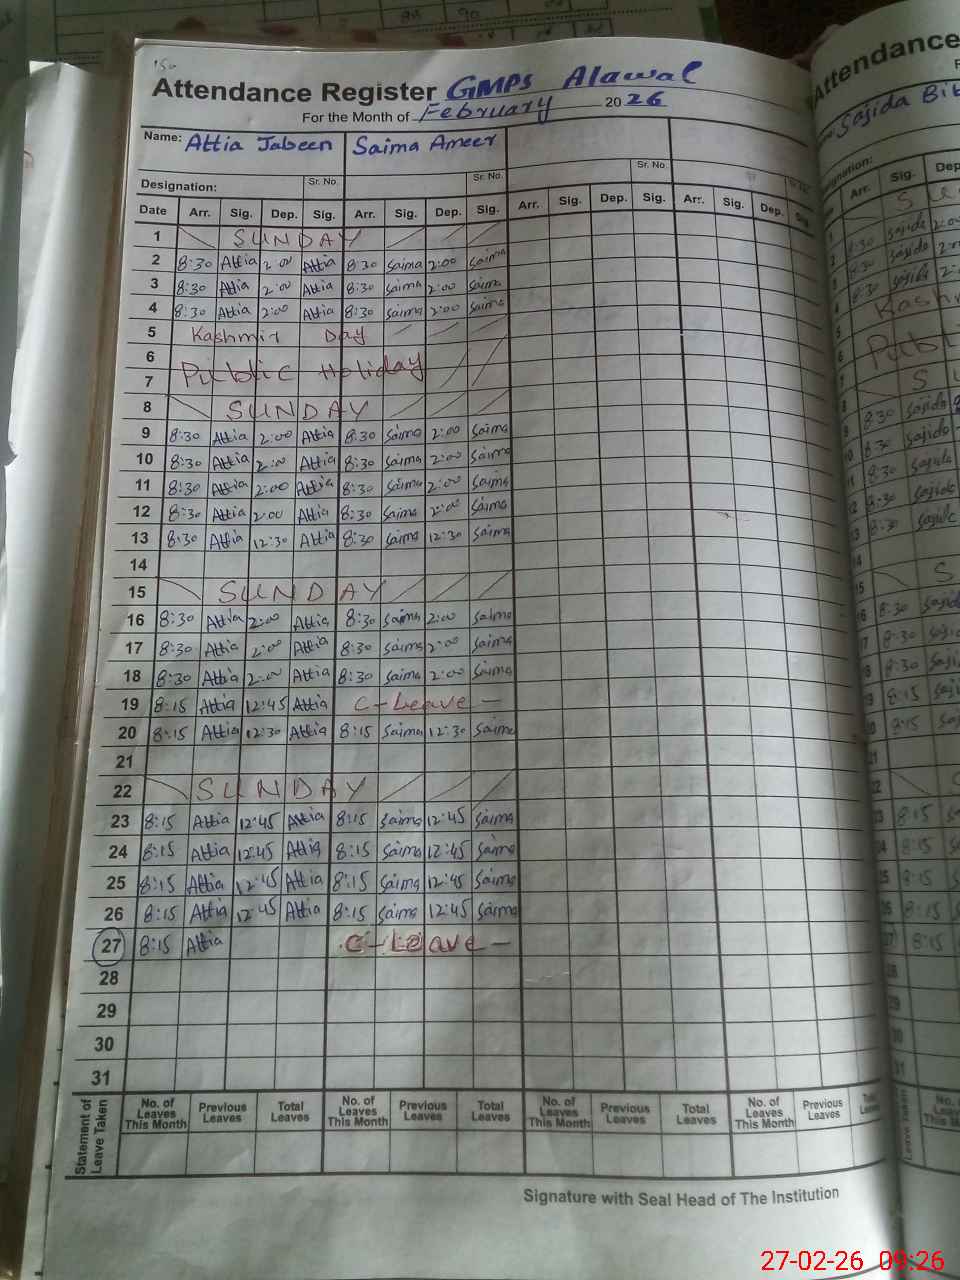 150
Attendance Register GMPS Alawal
For the Month of February 2026
Name: Attia Jabeen Saima Ameer
Sr. No. Sr. No. Sr. No.
Designation:
Date Arr. Sig. Dep. Sig. Arr. Sig. Dep. Sig. Arr. Sig. Dep. Sig. Arr. Sig. Dep. Sig.
1 SUNDAY
2 8:30 Attia 2:00 Attia 8:30 Saima 2:00 Saima
3 8:30 Attia 2:00 Attia 8:30 Saima 2:00 Saima
4 8:30 Attia 2:00 Attia 8:30 Saima 2:00 Saima
5 Kashmir Day
6
7 Public Holiday
8 SUNDAY
9 8:30 Attia 2:00 Attia 8:30 Saima 2:00 Saima
10 8:30 Attia 2:00 Attia 8:30 Saima 2:00 Saima
11 8:30 Attia 2:00 Attia 8:30 Saima 2:00 Saima
12 8:30 Attia 2:00 Attia 8:30 Saima 2:00 Saima
13 8:30 Attia 12:30 Attia 8:30 Saima 12:30 Saima
14
15 SUNDAY
16 8:30 Attia 2:00 Attia 8:30 Saima 2:00 Saima
17 8:30 Attia 2:00 Attia 8:30 Saima 2:00 Saima
18 8:30 Attia 2:00 Attia 8:30 Saima 2:00 Saima
19 8:15 Attia 12:45 Attia C-Leave -
20 8:15 Attia 12:30 Attia 8:15 Saima 12:30 Saima
21
22 SUNDAY
23 8:15 Attia 12:45 Attia 8:15 Saima 12:45 Saima
24 8:15 Attia 12:45 Attia 8:15 Saima 12:45 Saima
25 8:15 Attia 12:45 Attia 8:15 Saima 12:45 Saima
26 8:15 Attia 12:45 Attia 8:15 Saima 12:45 Saima
27 8:15 Attia C-Leave -
28
29
30
31
Statement of Leave Taken
No. of Leaves This Month Previous Leaves Total Leaves No. of Leaves This Month Previous Leaves Total Leaves No. of Leaves This Month Previous Leaves Total Leaves No. of Leaves This Month Previous Leaves
Signature with Seal Head of The Institution
Attendance
Sajida Bib
Arr. Sig. Dep
27-02-26 09:26